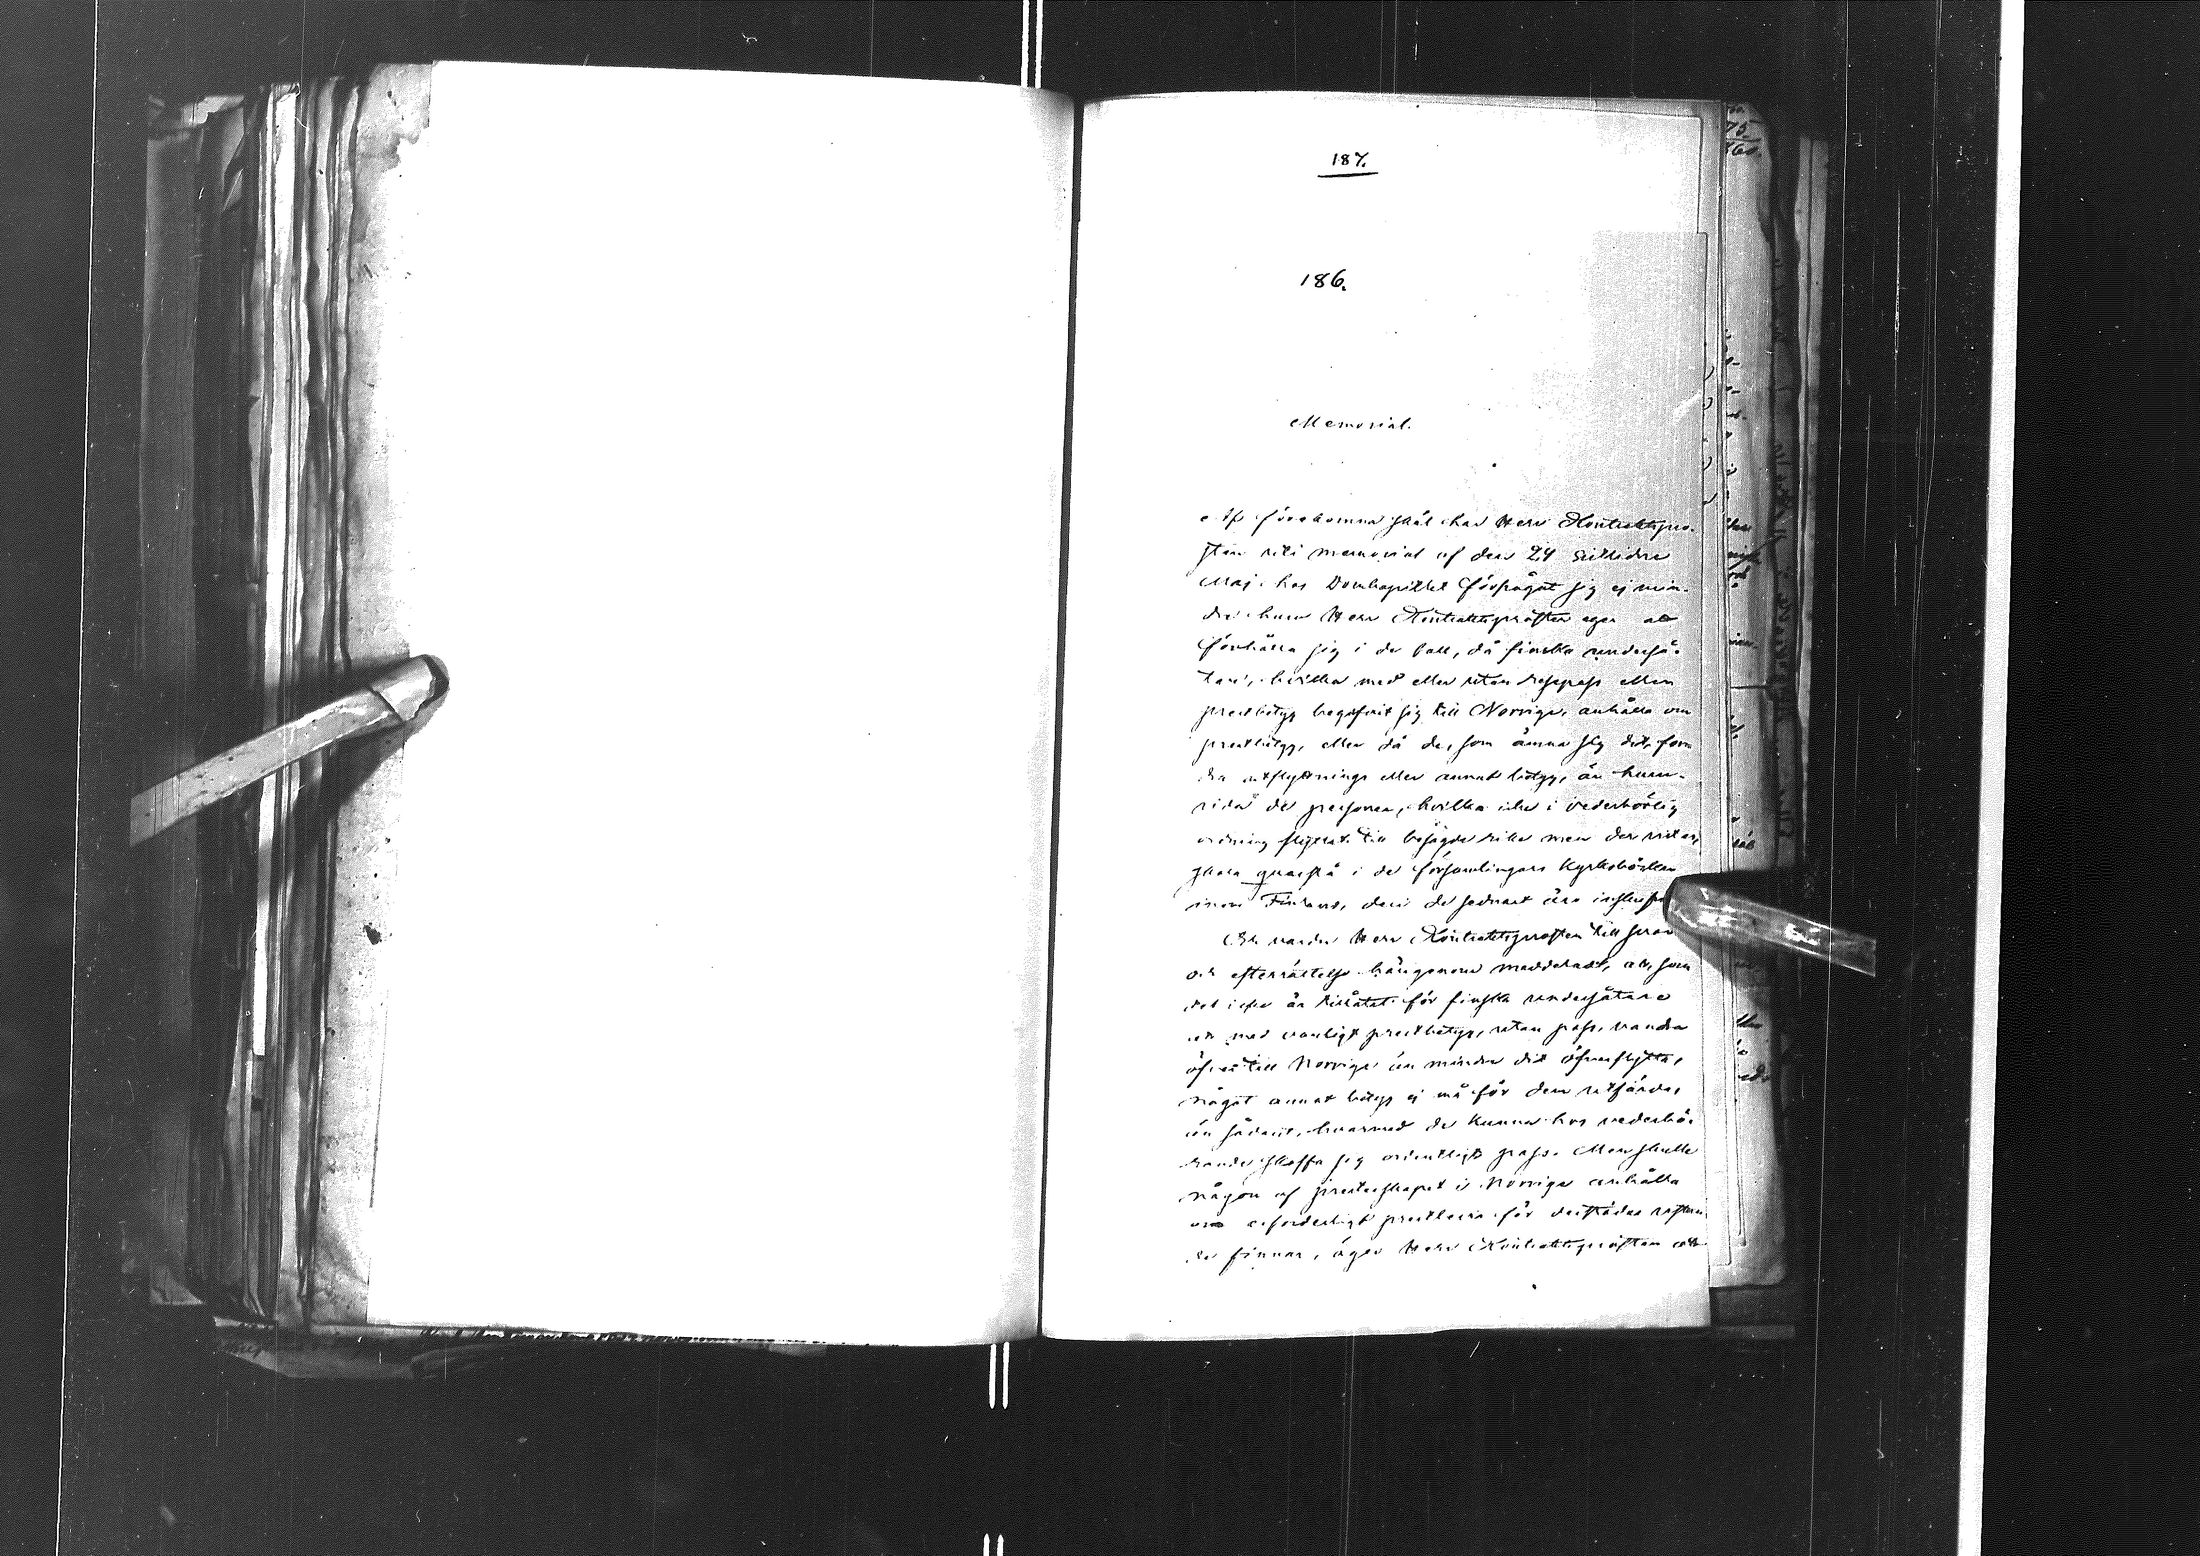 187.
186.
Memorial.
Af förekomna skäl har Herr Kontraktspro-
sten uti memorial af den 24 sistlidne
Maj hos Domkapitlet förfrågat sig ej min-
dre huru Herr Kontraktsprosten eger att
förhålla sig i de fall, då finska underså-
tare, hvilka med eller utan respass eller
prestbetyg begifvit sig till Norrige, anhålla om
prestbetyg, eller då de, som ämna sig dit, ford
ra utflyttnings eller annat betyg, än huru-
vida de personer, hvilka icke i vederbörlig
ordning flyttat till besagde rike men der vistas,
skola quarstå i de församlingars Kyrkoböcker
inom Finland, deri de sednast äro inskrifna
Och varder Herr Kontraktsprosten till svar
och efterrättelse härigenom meddeladt, att, som
det icke är tillåtet för finska undersåtare
att med vanligt prestbetyg, utan pass, vandra
öfver till Norrige än mindre dit öfverflytta,
något annat betyg ej må för dem utfärdas
än sådant, hvarmed de kunna hos vederbö-
rande skaffa sig ordentligt pass. Men skulle
någon af presterskapet i Norrige anhålla
om erforderligt prestbevis för derstädes vistan
de finnar, äger Herr Kontraktsprosten att